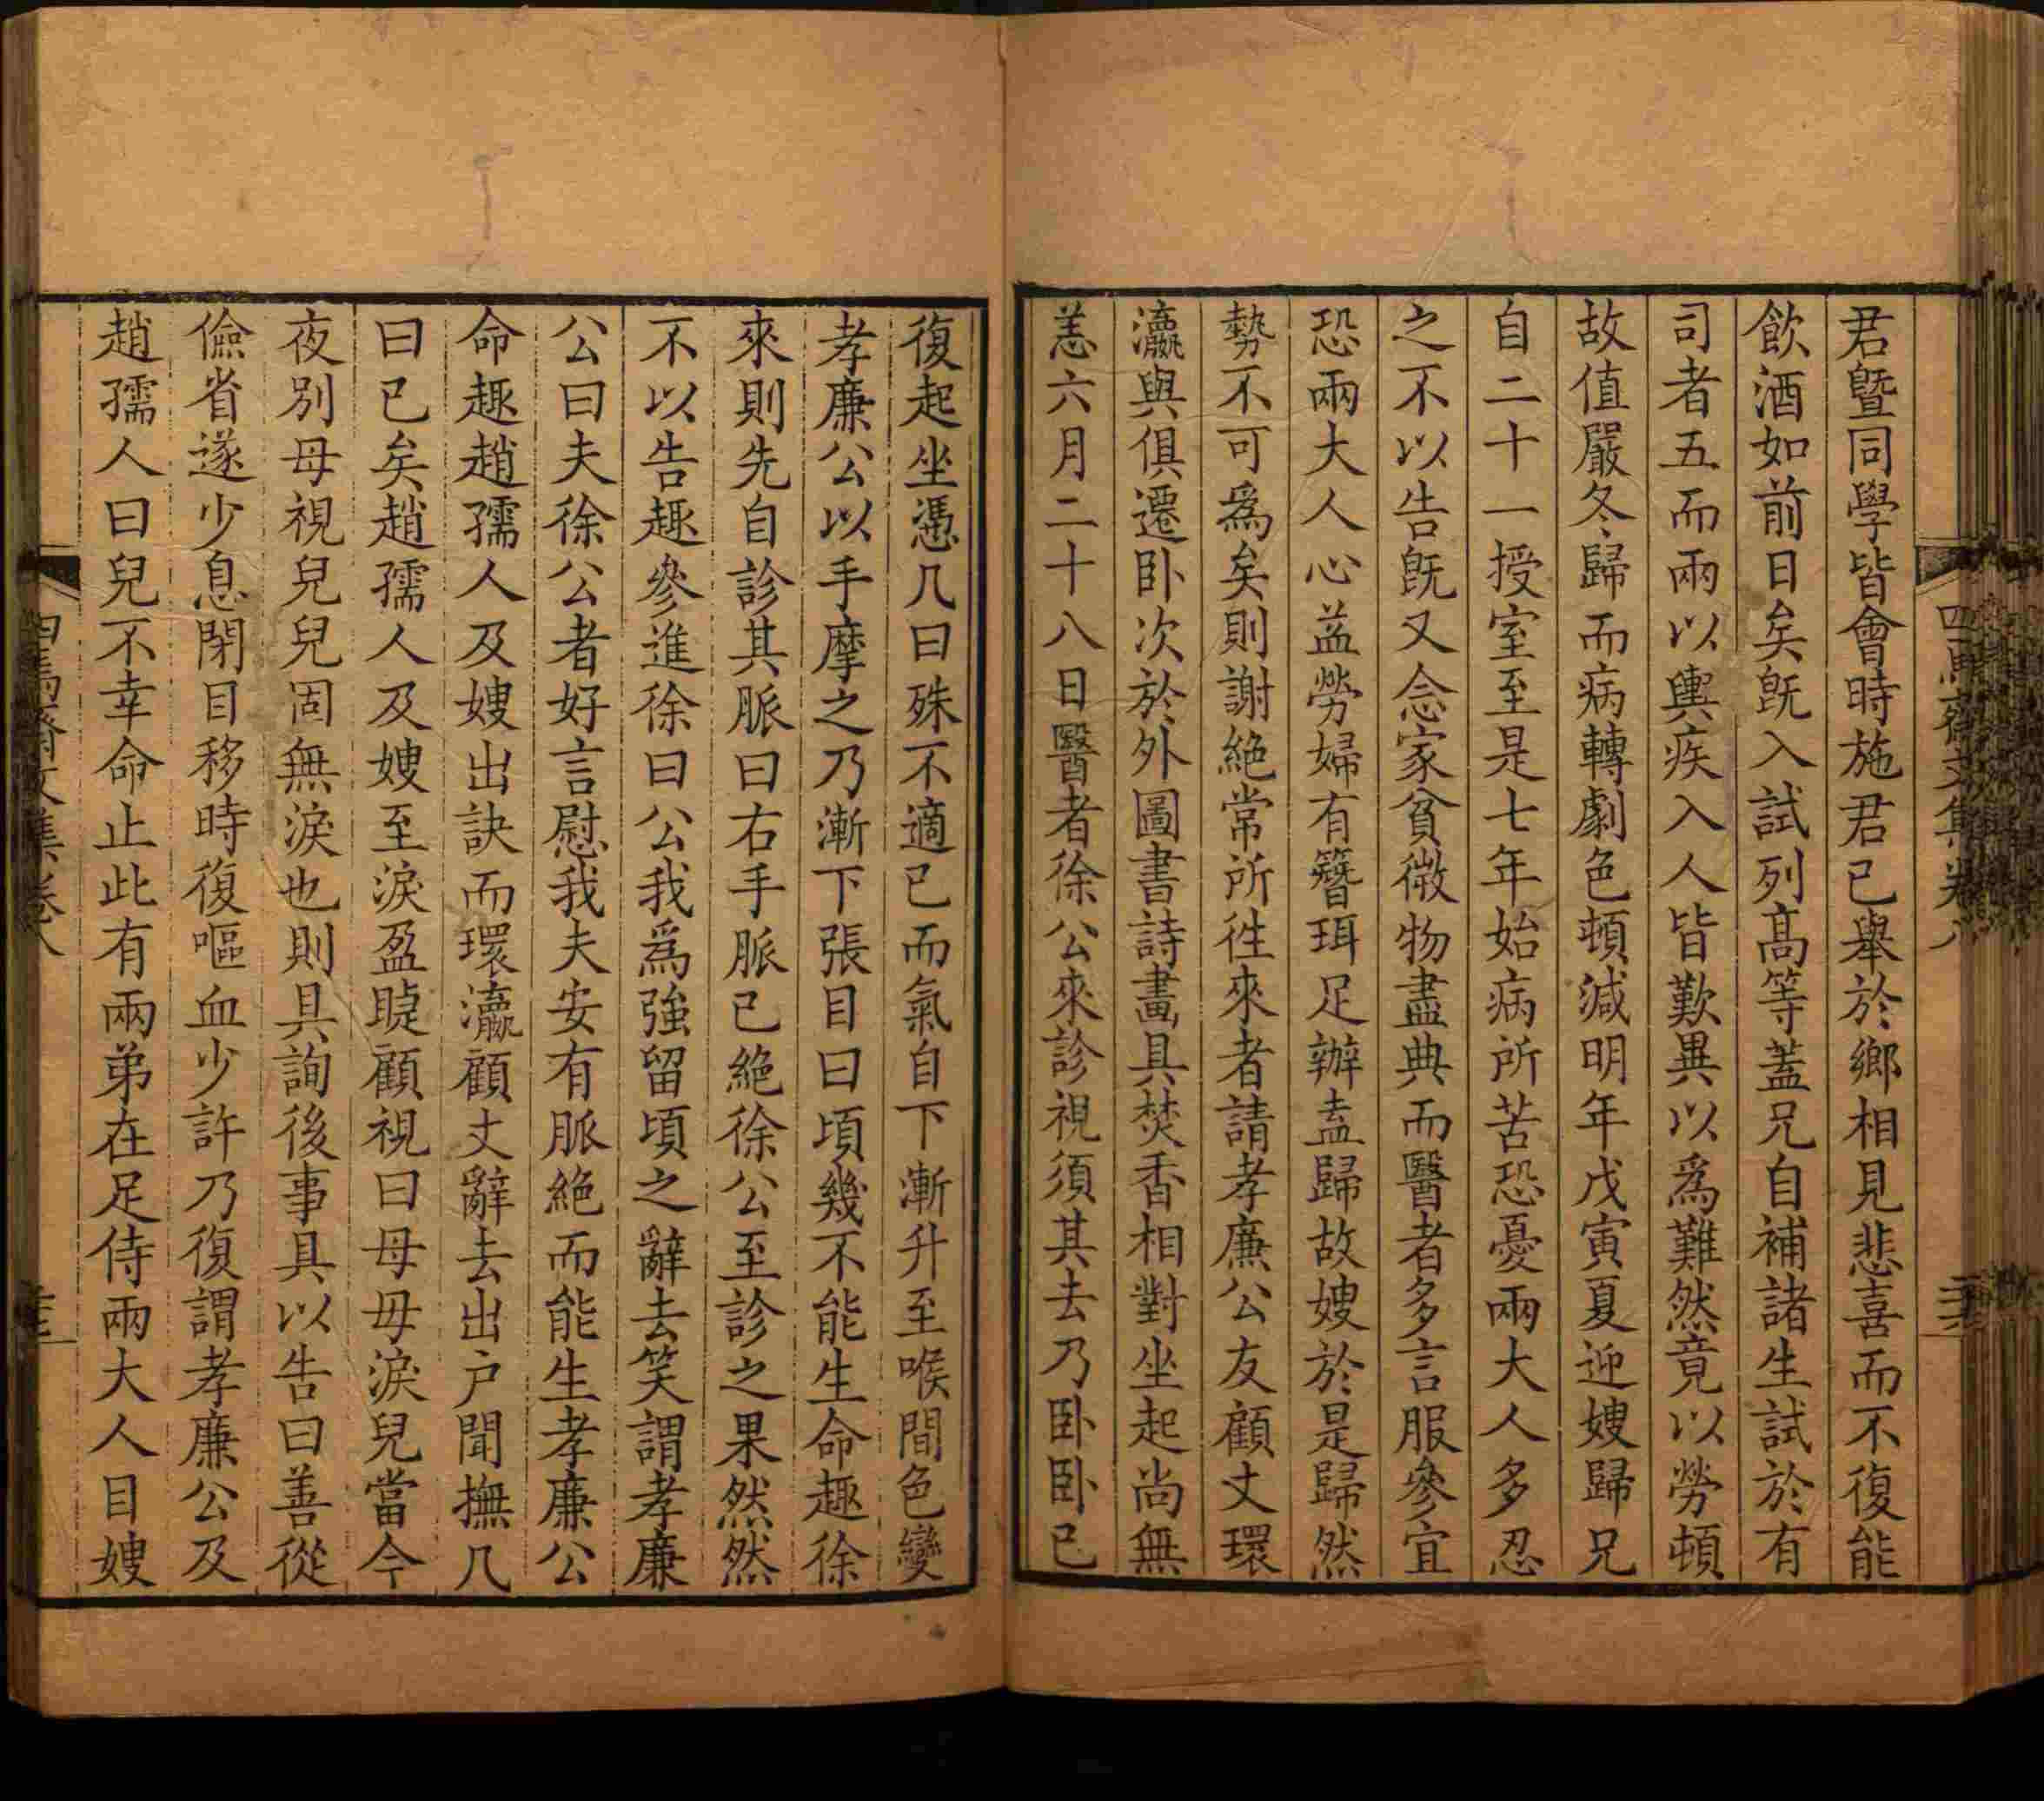 君曁同學皆會時施君已舉於鄉相見悲喜而不復能
飲酒如前日矣旣入試列高等蓋兄自補諸生試於有
司者五而兩以輿疾入人皆歎異以爲難然竟以勞頓
故値嚴冬歸而病轉劇色頓減明年戊寅夏迎嫂歸兄
自二十一授室至是七年始病所苦恐憂兩大人多忍
之不以告旣又念家貧微物盡典而醫者多言服參宜
恐兩大人心益勞婦有簪珥足辦盍歸故嫂於是歸然
勢不可爲矣則謝絶常所往來者請孝廉公友顧丈環
瀛與俱遷臥次於外圖書詩畫具焚香相對坐起尚無
恙六月二十八日醫者徐公來診視須其去乃臥臥已
復起坐憑几曰殊不適已而氣自下漸升至喉間色變
孝廉公以手摩之乃漸下張目曰頃幾不能生命趣徐
來則先自診其脈曰右手脈已絶徐公至診之果然然
不以告趣參進徐曰公我爲強留頃之辭去笑謂孝廉
公曰夫徐公者好言慰我夫安有脈絶而能生孝廉公
命趣趙孺人及嫂出訣而環瀛顧丈辭去出戶聞撫几
曰已矣趙孺人及嫂至淚盈睫顧視曰母毋淚兒當今
夜別母視兒兒固無淚也則具詢後事具以告曰善從
儉省遂少息閉目移時復嘔血少許乃復謂孝廉公及
趙孺人曰兒不幸命止此有兩弟在足侍兩大人目嫂
四焉齋文集卷八